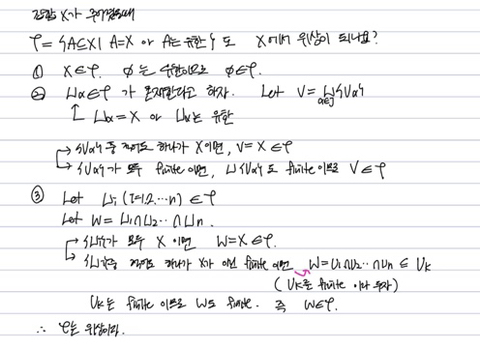 집합 X가 주어졌을때
τ = {A⊆X | A=X or A는 유한} 도 X에서 위상이 되나요?
① X∈τ. ∅는 유한이므로 ∅∈τ.
② Uα∈τ 가 존재한다고 하자. Let V = ∪{Uα}
α∈J
Uα=X or Uα는 유한
{Uα} 중 적어도 하나가 X이면, V=X∈τ
{Uα}가 모두 finite 이면, ∪{Uα}도 finite 이므로 V∈τ
③ Let Ui (i=1,2,…n) ∈τ
Let W = U1∩U2…∩Un.
{Ui}가 모두 X 이면 W=X∈τ.
{Ui}중 적어도 하나가 X가 아닌 finite 이면 W=U1∩U2…∩Un ⊆ Uk
(Uk를 finite 이라 두자)
Uk는 finite 이므로 W도 finite. 즉 W∈τ.
∴ τ는 위상이다.